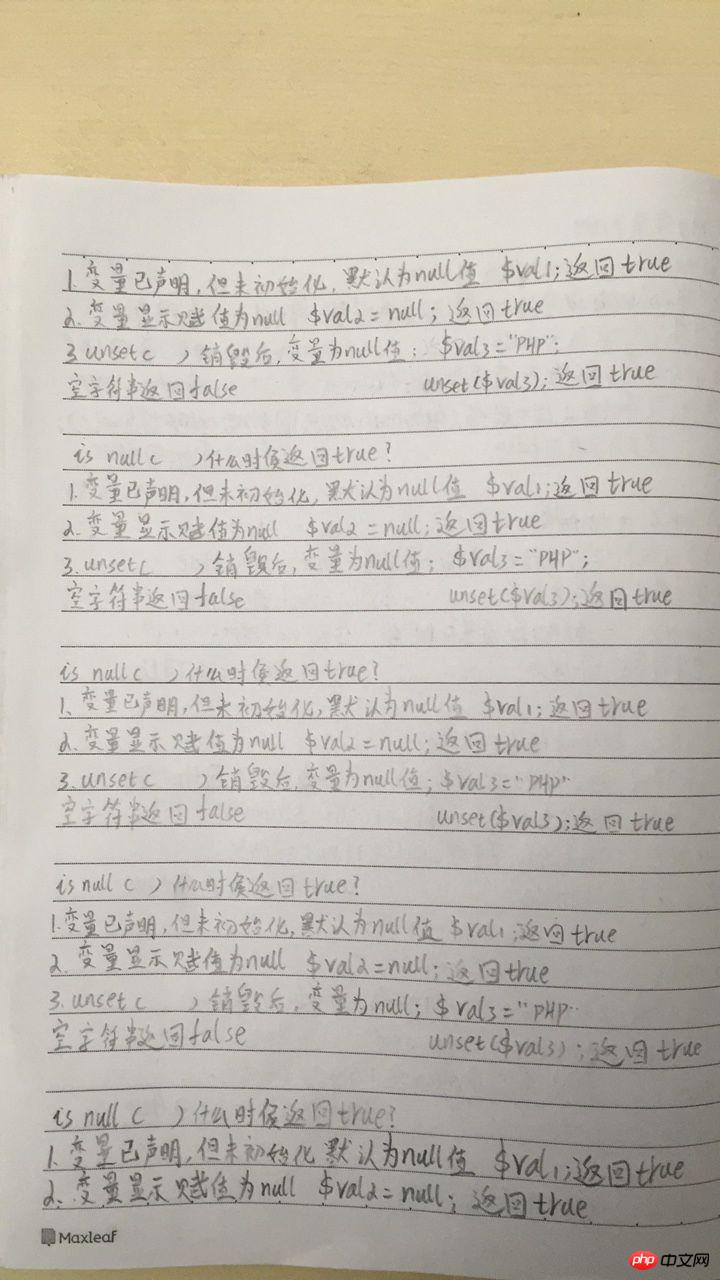 1.变量已声明,但未初始化,默认为null值 $val1;返回true
2.变量显示赋值为null $val2=null; 返回true
3.unset( )销毁后,变量为null值; $val3="PHP";
空字符串返回false unset($val3);返回true
is null( )什么时候返回true?
1.变量已声明,但未初始化,默认为null值 $val1;返回true
2.变量显示赋值为null $val2=null;返回true
3.unset( )销毁后,变量为null值; $val3="PHP";
空字符串返回false unset($val3);返回true
is null( )什么时候返回true?
1.变量已声明,但未初始化,默认为null值 $val1;返回true
2.变量显示赋值为null $val2=null;返回true
3.unset( )销毁后,变量为null值;$val3="PHP"
空字符串返回false unset($val3);返回true
is null( )什么时候返回true?
1.变量已声明,但未初始化,默认为null值 $val1;返回true
2.变量显示赋值为null $val2=null;返回true
3.unset( )销毁后,变量为null; $val3="PHP"
空字符串返回false unset($val3);返回true
is null( )什么时候返回true?
1.变量已声明,但未初始化 默认为null值 $val1;返回true
2.变量显示赋值为null $val2=null; 返回true
Maxleaf
php 中文网